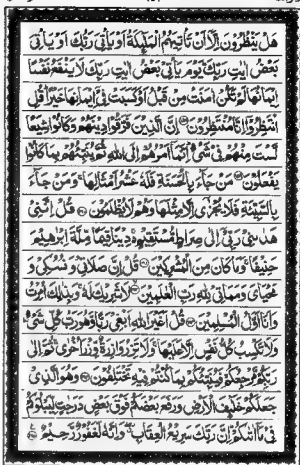 هَلْ يَنْظُرُوْنَ اِلَّآ اَنْ تَاْتِيَهُمُ الْمَلٰٓئِكَةُ اَوْ يَاْتِيَ رَبُّكَ اَوْ يَاْتِيَ
بَعْضُ اٰيٰتِ رَبِّكَ ؕ يَوْمَ يَاْتِيْ بَعْضُ اٰيٰتِ رَبِّكَ لَا يَنْفَعُ نَفْسًا
اِيْمَانُهَا لَمْ تَكُنْ اٰمَنَتْ مِنْ قَبْلُ اَوْ كَسَبَتْ فِيْٓ اِيْمَانِهَا خَيْرًا ؕ قُلِ
انْتَظِرُوْٓا اِنَّا مُنْتَظِرُوْنَ اِنَّ الَّذِيْنَ فَرَّقُوْا دِيْنَهُمْ وَكَانُوْا شِيَعًا
لَّسْتَ مِنْهُمْ فِيْ شَيْءٍ ؕ اِنَّمَآ اَمْرُهُمْ اِلَى اللّٰهِ ثُمَّ يُنَبِّئُهُمْ بِمَا كَانُوْا
يَفْعَلُوْنَ مَنْ جَآءَ بِالْحَسَنَةِ فَلَهٗ عَشْرُ اَمْثَالِهَا ۚ وَمَنْ جَآءَ
بِالسَّيِّئَةِ فَلَا يُجْزٰٓى اِلَّا مِثْلَهَا وَهُمْ لَا يُظْلَمُوْنَ قُلْ اِنَّنِيْ
هَدٰىنِيْ رَبِّيْٓ اِلٰى صِرَاطٍ مُّسْتَقِيْمٍ ۚ دِيْنًا قِيَمًا مِّلَّةَ اِبْرٰهِيْمَ
حَنِيْفًا ۚ وَمَا كَانَ مِنَ الْمُشْرِكِيْنَ قُلْ اِنَّ صَلَاتِيْ وَنُسُكِيْ وَ
مَحْيَايَ وَمَمَاتِيْ لِلّٰهِ رَبِّ الْعٰلَمِيْنَ لَا شَرِيْكَ لَهٗ ۚ وَبِذٰلِكَ اُمِرْتُ
وَاَنَا اَوَّلُ الْمُسْلِمِيْنَ قُلْ اَغَيْرَ اللّٰهِ اَبْغِيْ رَبًّا وَّهُوَ رَبُّ كُلِّ شَيْءٍ ؕ
وَلَا تَكْسِبُ كُلُّ نَفْسٍ اِلَّا عَلَيْهَا ۚ وَلَا تَزِرُ وَازِرَةٌ وِّزْرَ اُخْرٰى ۚ ثُمَّ اِلٰى
رَبِّكُمْ مَّرْجِعُكُمْ فَيُنَبِّئُكُمْ بِمَا كُنْتُمْ فِيْهِ تَخْتَلِفُوْنَ وَهُوَ الَّذِيْ
جَعَلَكُمْ خَلٰٓئِفَ الْاَرْضِ وَرَفَعَ بَعْضَكُمْ فَوْقَ بَعْضٍ دَرَجٰتٍ لِّيَبْلُوَكُمْ
فِيْ مَآ اٰتٰىكُمْ ؕ اِنَّ رَبَّكَ سَرِيْعُ الْعِقَابِ ۖ وَاِنَّهٗ لَغَفُوْرٌ رَّحِيْمٌ